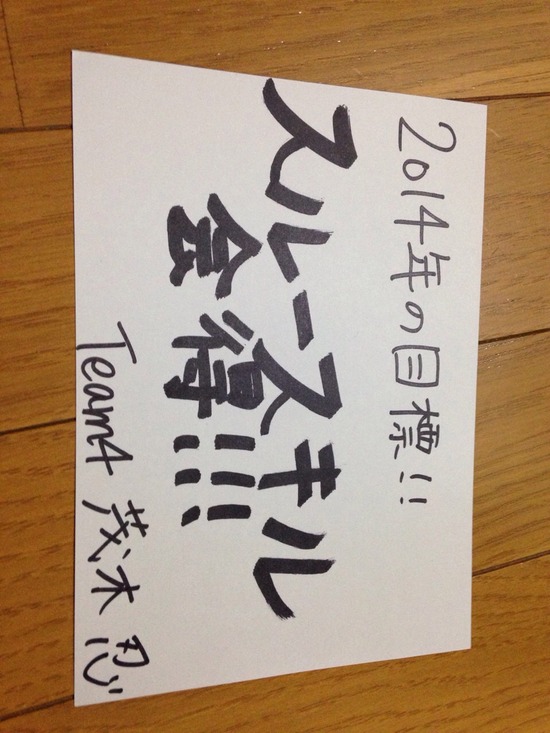 2014年の目標!!
スルースキル
会得!!!
Team4 茂木忍